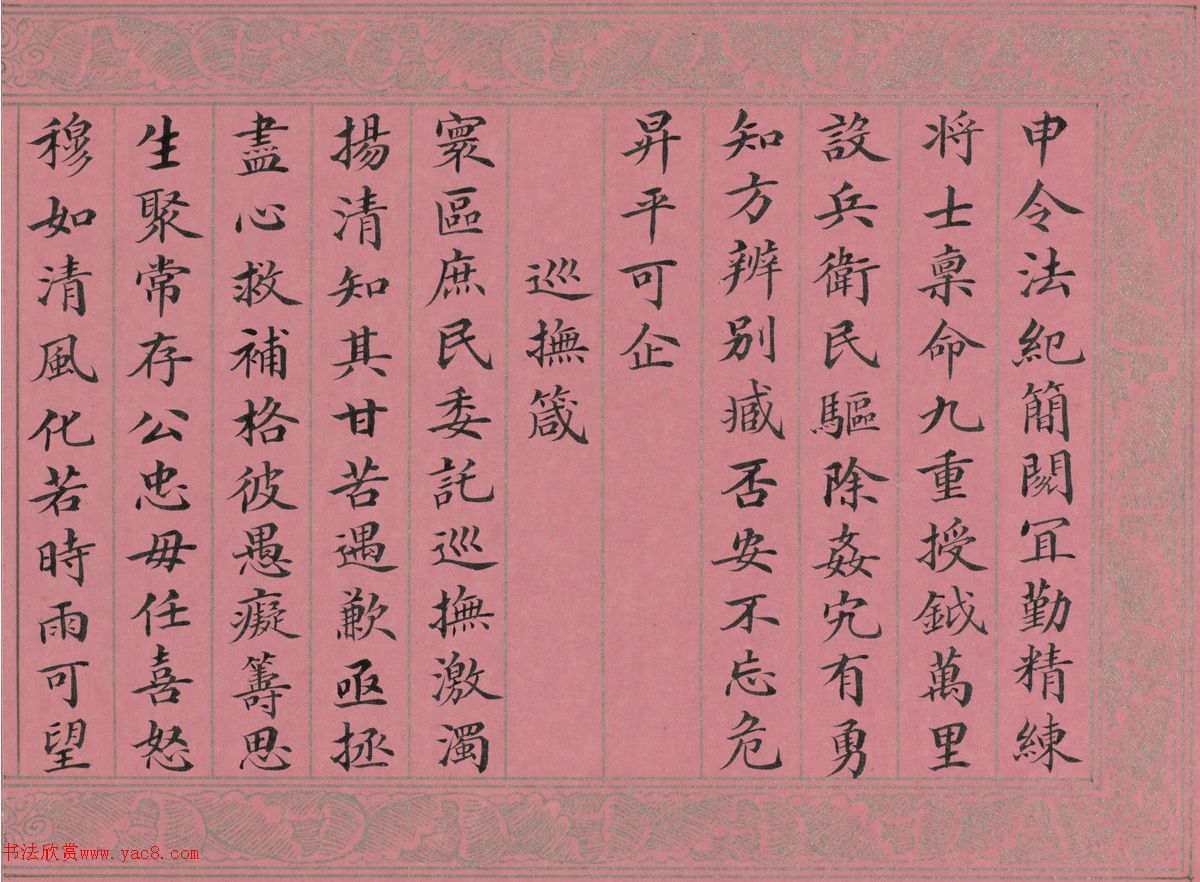 申令法紀簡閱宜勤精練
将士稟命九重授鉞萬里
設兵衛民驅除姦宄有勇
知方辨别臧否安不忘危
昇平可企
巡撫箴
寰區庶民委託巡撫激濁
揚清知其甘苦遇歉亟拯
盡心救補格彼愚癡籌思
生聚常存公忠毋任喜怒
穆如清風化若時雨可望
书法欣赏www.yac8.com